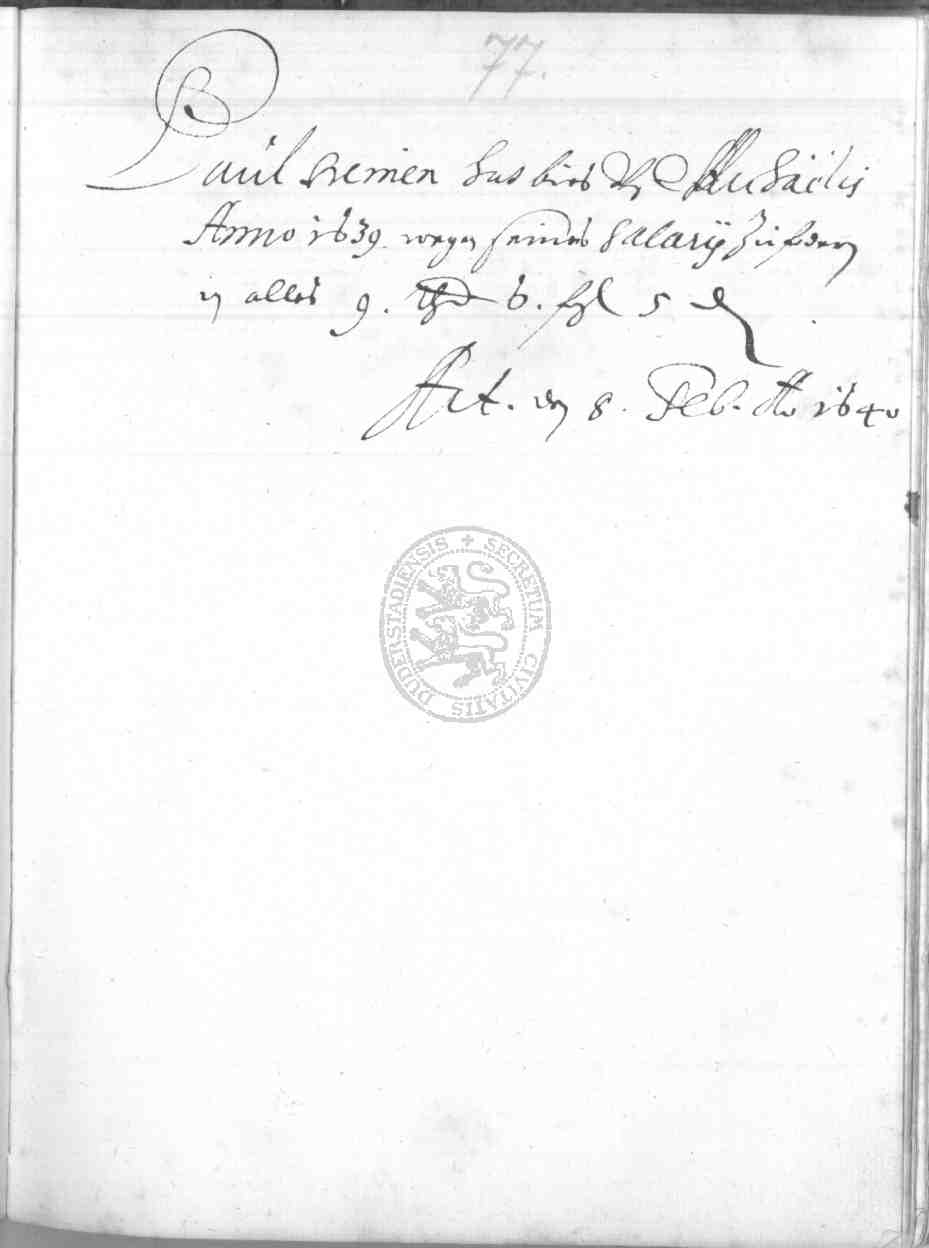 77.
Paul Hemen hat bies Michaëlis
Anno 1639. wegen seines Salarij zu fodern
in alles 9. 6. 5
Act. den 8. Feb. Ao 1640
SECRETUM CIVITATIS DUDERSTADIENSIS